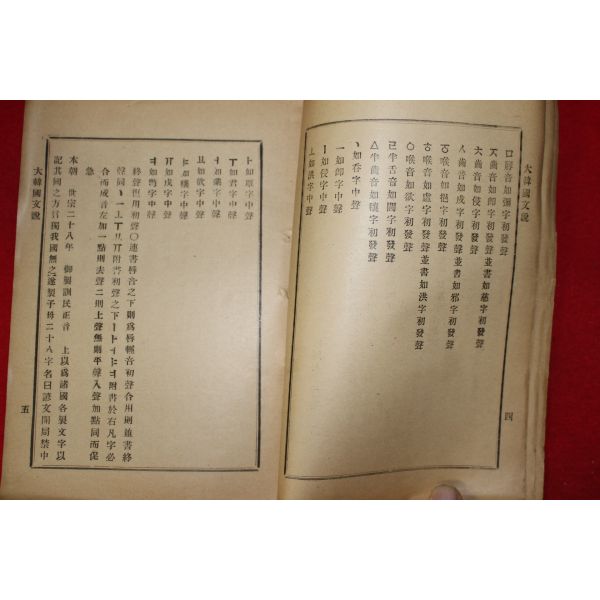 大韓國文說
ㅁ脣音如彌字初發聲
ㅈ齒音如卽字初發聲並書如慈字初發聲
ㅊ齒音如侵字初發聲
ㅅ齒音如戍字初發聲並書如邪字初發聲
ㆆ喉音如挹字初發聲
ㅎ喉音如虛字初發聲並書如洪字初發聲
ㅇ喉音如欲字初發聲
ㄹ半舌音如閭字初發聲
ㅿ半齒音如穰字初發聲
ㆍ如呑字中聲
ㅡ如卽字中聲
ㅣ如侵字中聲
ㅗ如洪字中聲
四
ㅏ如覃字中聲
ㅜ如君字中聲
ㅓ如業字中聲
ㅛ如欲字中聲
ㅑ如穰字中聲
ㅠ如戌字中聲
ㅕ如彆字中聲
終聲復用初聲○連書脣音之下則爲脣輕音初聲合用則並書終
聲同ㆍㅡㅗㅜㅛㅠ附書初聲之下ㅣㅏㅓㅑㅕ附書於右凡字必
合而成音左加一點則去聲二則上聲無則平聲入聲加點同而促
急
本朝 世宗二十八年 御製訓民正音 上以爲諸國各製文字以
記其國之方言獨我國無之遂製子母二十八字名曰諺文開局禁中
大韓國文說
五